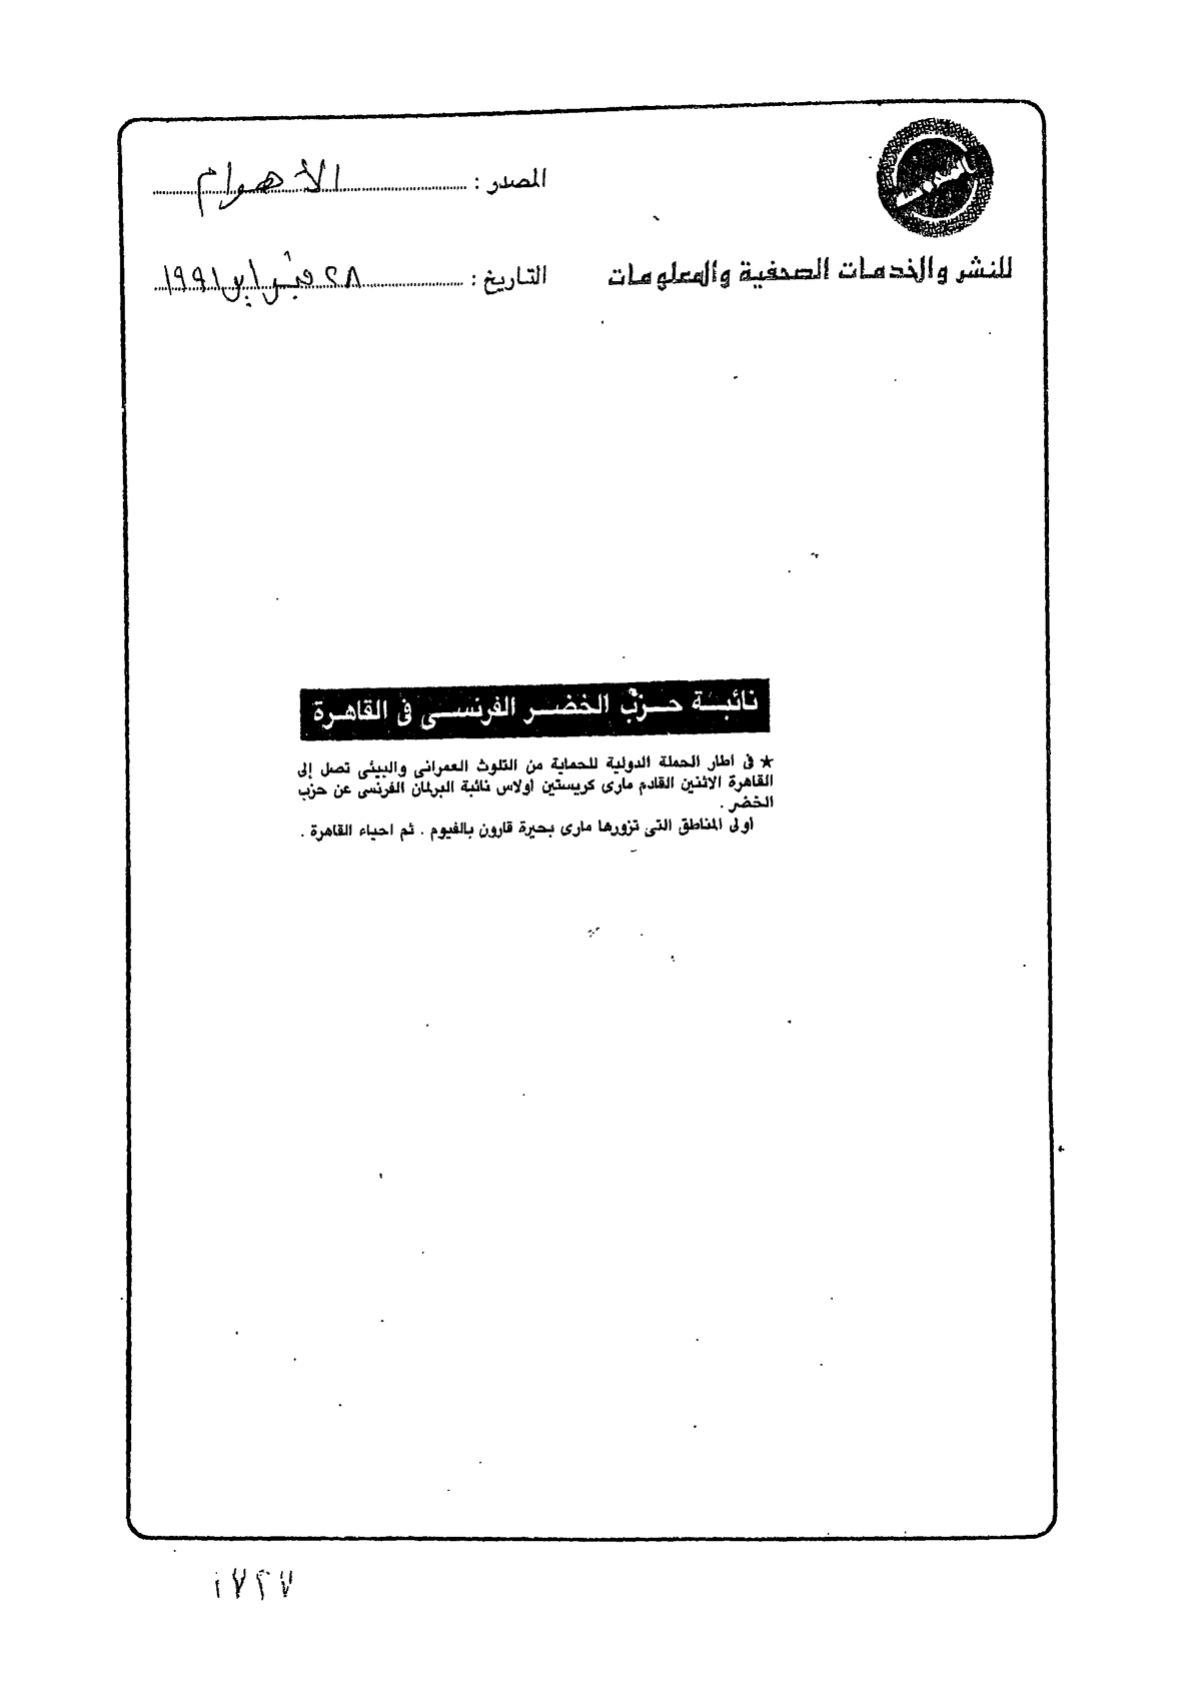 المصدر : الأهرام
للنشر والخدمات الصحفية والمعلومات
التاريخ : ٢٨ فبراير ١٩٩١
نائبة حزب الخضر الفرنسى فى القاهرة
★ فى اطار الحملة الدولية للحماية من التلوث العمرانى والبيئى تصل إلى
القاهرة الاثنين القادم مارى كريستين اولاس نائبة البرلمان الفرنسى عن حزب
الخضر .
أولى المناطق التى تزورها مارى بحيرة قارون بالفيوم . ثم احياء القاهرة .